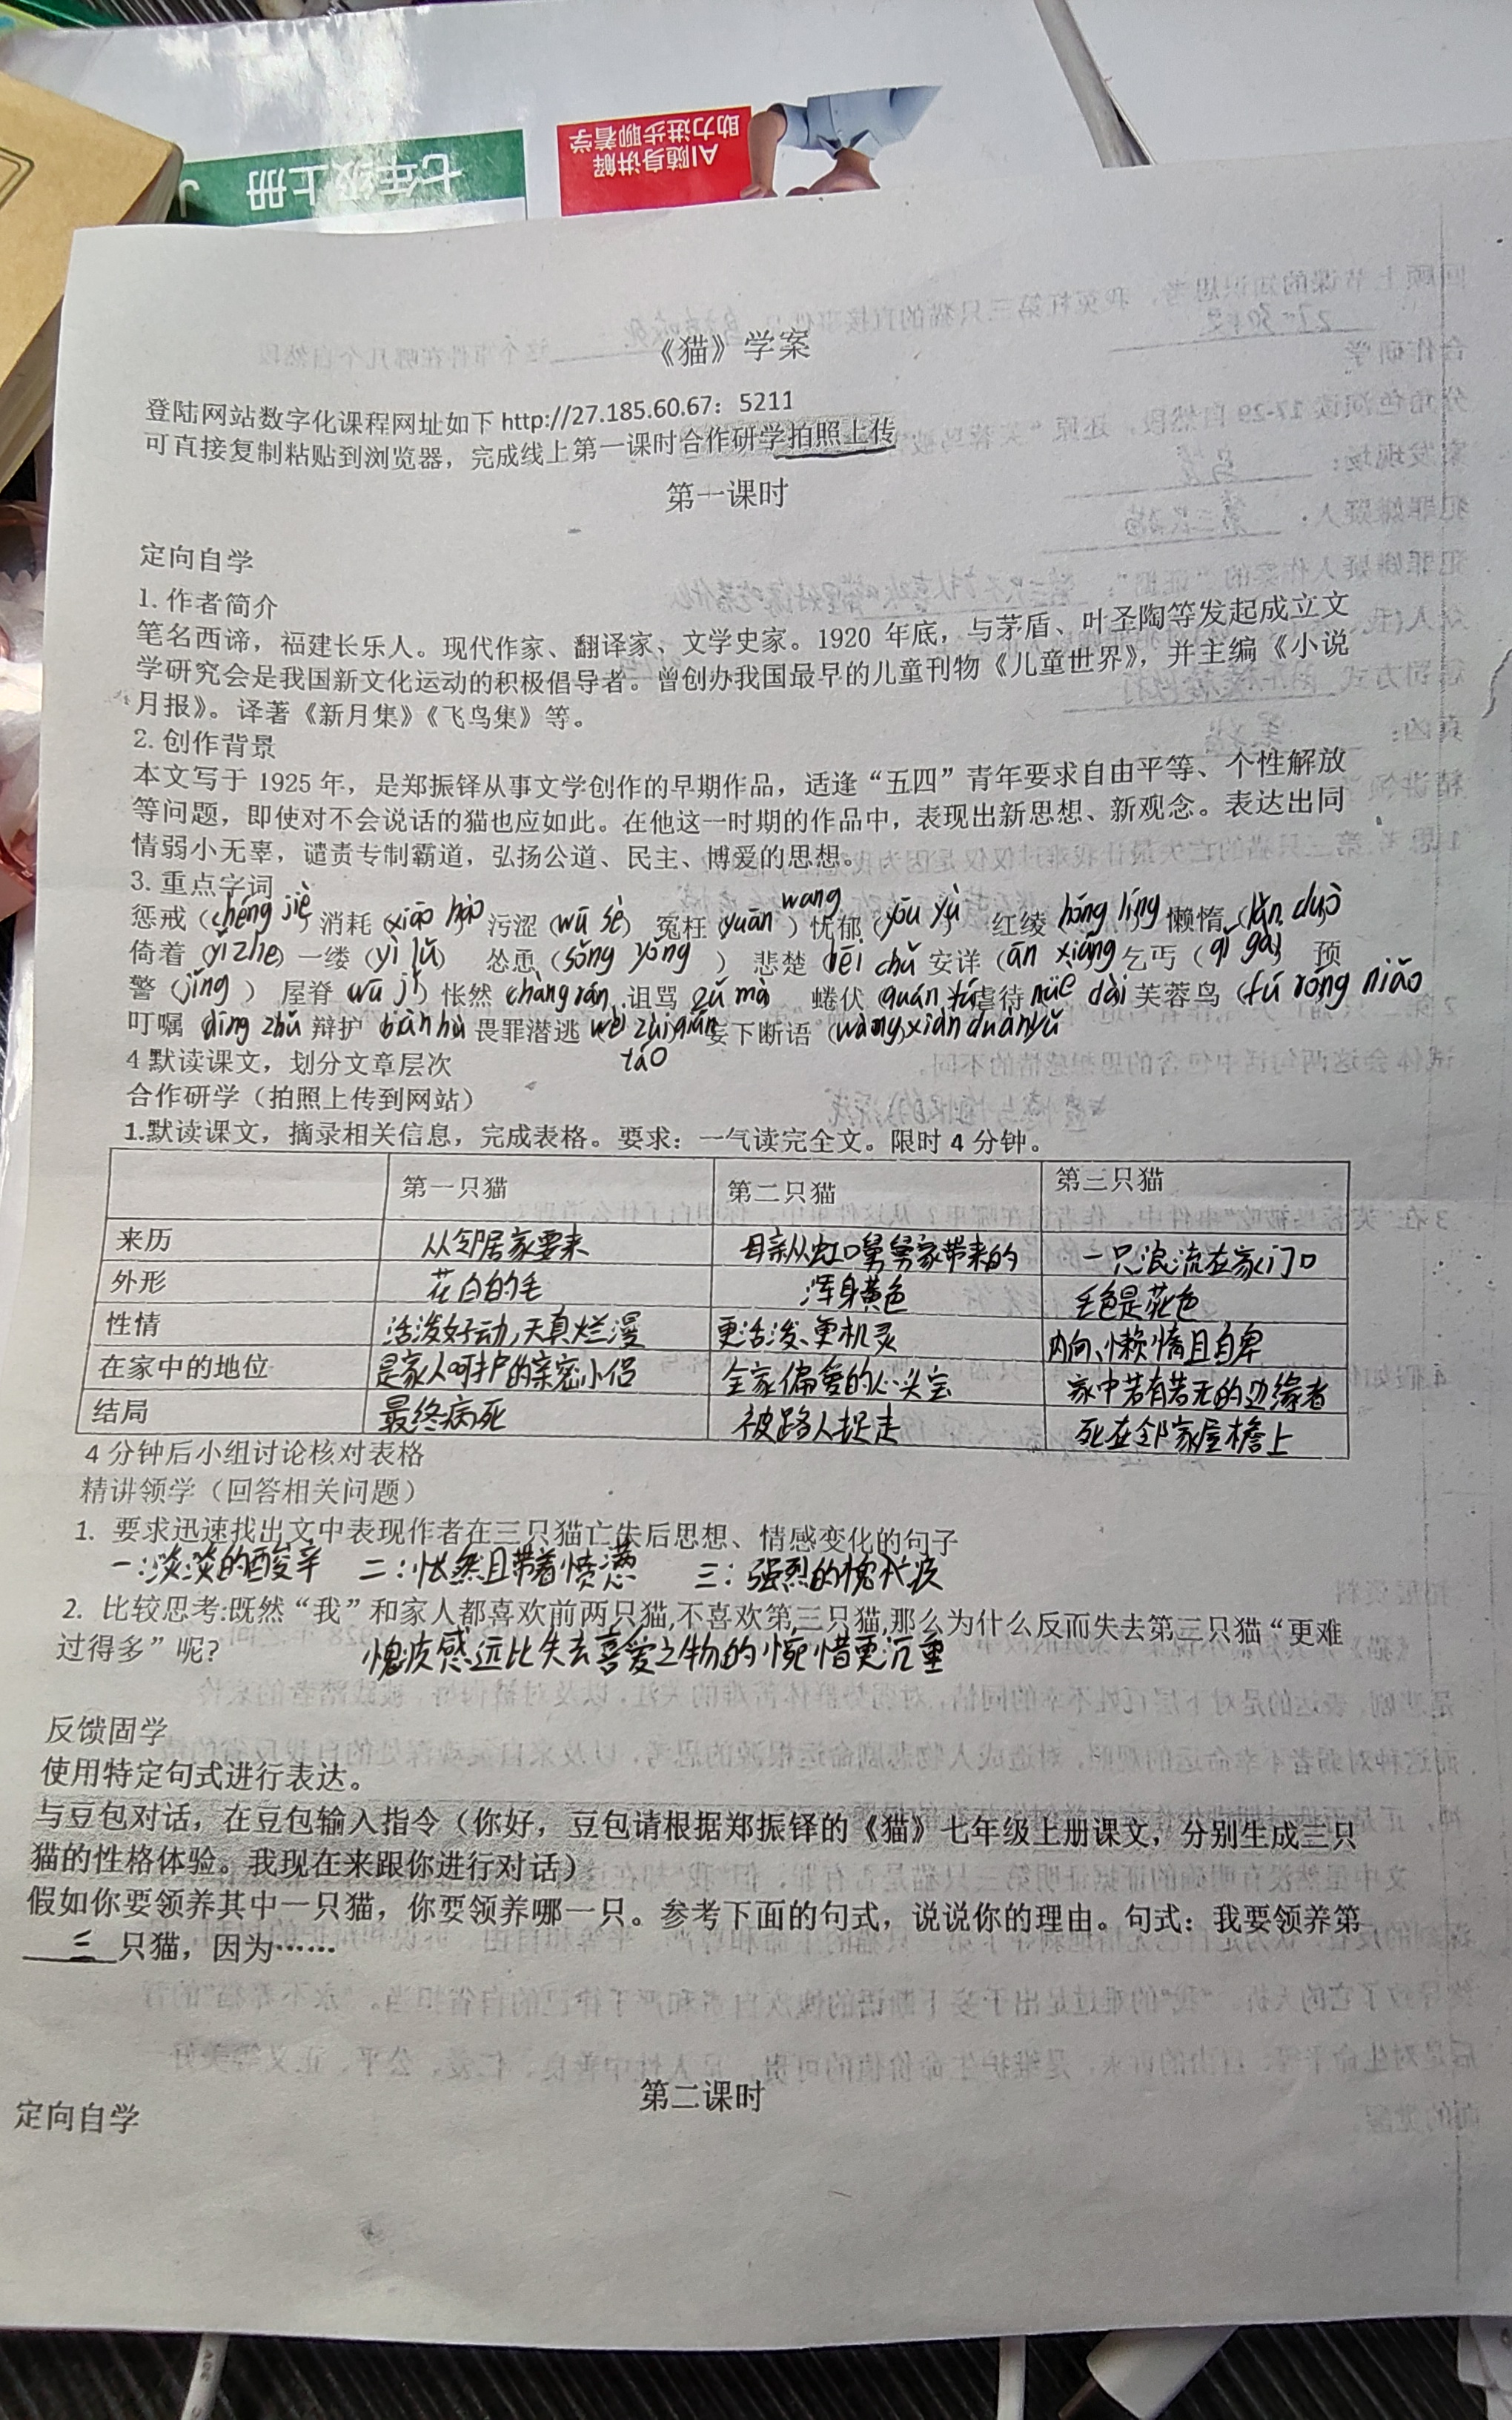 七年级上册
AI随身讲解
助力进步聊着学
《猫》学案
登陆网站数字化课程网址如下 http://27.185.60.67：5211
可直接复制粘贴到浏览器，完成线上第一课时合作研学拍照上传
第一课时
定向自学
1. 作者简介
笔名西谛，福建长乐人。现代作家、翻译家、文学史家。1920 年底，与茅盾、叶圣陶等发起成立文
学研究会是我国新文化运动的积极倡导者。曾创办我国最早的儿童刊物《儿童世界》，并主编《小说
月报》。译著《新月集》《飞鸟集》等。
2. 创作背景
本文写于 1925 年，是郑振铎从事文学创作的早期作品，适逢“五四”青年要求自由平等、个性解放
等问题，即使对不会说话的猫也应如此。在他这一时期的作品中，表现出新思想、新观念。表达出同
情弱小无辜，谴责专制霸道，弘扬公道、民主、博爱的思想。
3. 重点字词
惩戒（chéng jiè）消耗（xiāo hào）污涩（wū sè）冤枉（yuān wang）忧郁（yōu yù 红绫 hóng líng 懒惰（lǎn duò）
倚着（yǐ zhe）一缕（yì lǚ） 怂恿（sǒng yǒng ） 悲楚 bēi chǔ 安详（ān xiáng 乞丐（qǐ gài） 预
警（jǐng ） 屋脊 wū jǐ）怅然 chàng rán 诅骂 zǔ mà 蜷伏 quán fú 虐待 nüè dài 芙蓉鸟（fú róng niǎo
叮嘱 dīng zhǔ 辩护 biàn hù 畏罪潜逃 wèi zuì qián táo 妄下断语（wàng xià duàn yǔ
4 默读课文，划分文章层次
合作研学（拍照上传到网站）
1.默读课文，摘录相关信息，完成表格。要求：一气读完全文。限时 4 分钟。
第一只猫 第二只猫 第三只猫
来历 从邻居家要来 母亲从虹口舅舅家带来的 一只浪流在家门口
外形 花白的毛 浑身黄色 毛色是花色
性情 活泼好动，天真烂漫 更活泼、更机灵 内向、懒惰且自卑
在家中的地位 是家人呵护的亲密小侣 全家偏爱的心头宝 家中若有若无的边缘者
结局 最终病死 被路人捉走 死在邻家屋檐上
4 分钟后小组讨论核对表格
精讲领学（回答相关问题）
1. 要求迅速找出文中表现作者在三只猫亡失后思想、情感变化的句子
一：淡淡的酸辛 二：怅然且带着愤懑 三：强烈的愧疚
2. 比较思考:既然“我”和家人都喜欢前两只猫,不喜欢第三只猫,那么为什么反而失去第三只猫“更难
过得多”呢？
愧疚感远比失去喜爱之物的惋惜更沉重
反馈固学
使用特定句式进行表达。
与豆包对话，在豆包输入指令（你好，豆包请根据郑振铎的《猫》七年级上册课文，分别生成三只
猫的性格体验。我现在来跟你进行对话）
假如你要领养其中一只猫，你要领养哪一只。参考下面的句式，说说你的理由。句式：我要领养第
三 只猫，因为……
第二课时
定向自学